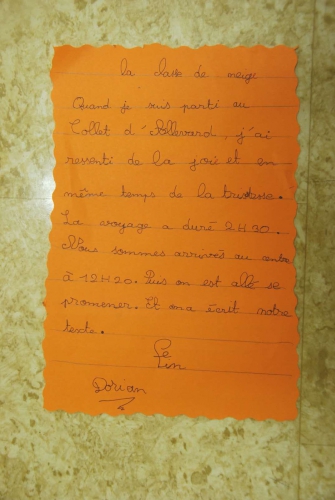 la classe de neige
Quand je suis parti au
Collet d'Allevard, j'ai
ressenti de la joie et en
même temps de la tristesse.
La voyage a duré 2H30.
Nous sommes arrivés au centre
à 12H20. Puis on est allé se
promener. Et on a écrit notre
texte.
Fin
Dorian